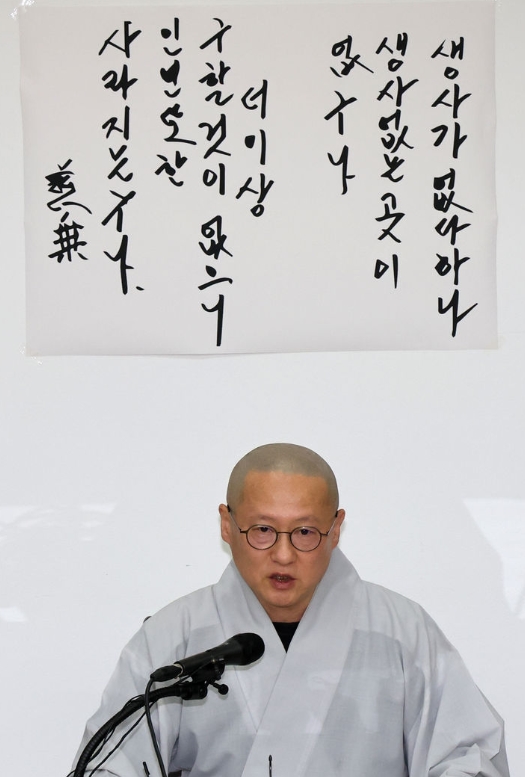 생사가 없다하나
생사없는 곳이
없구나
더이상
구할것이 없으니
인연또한
사라지는구나.
慈乘